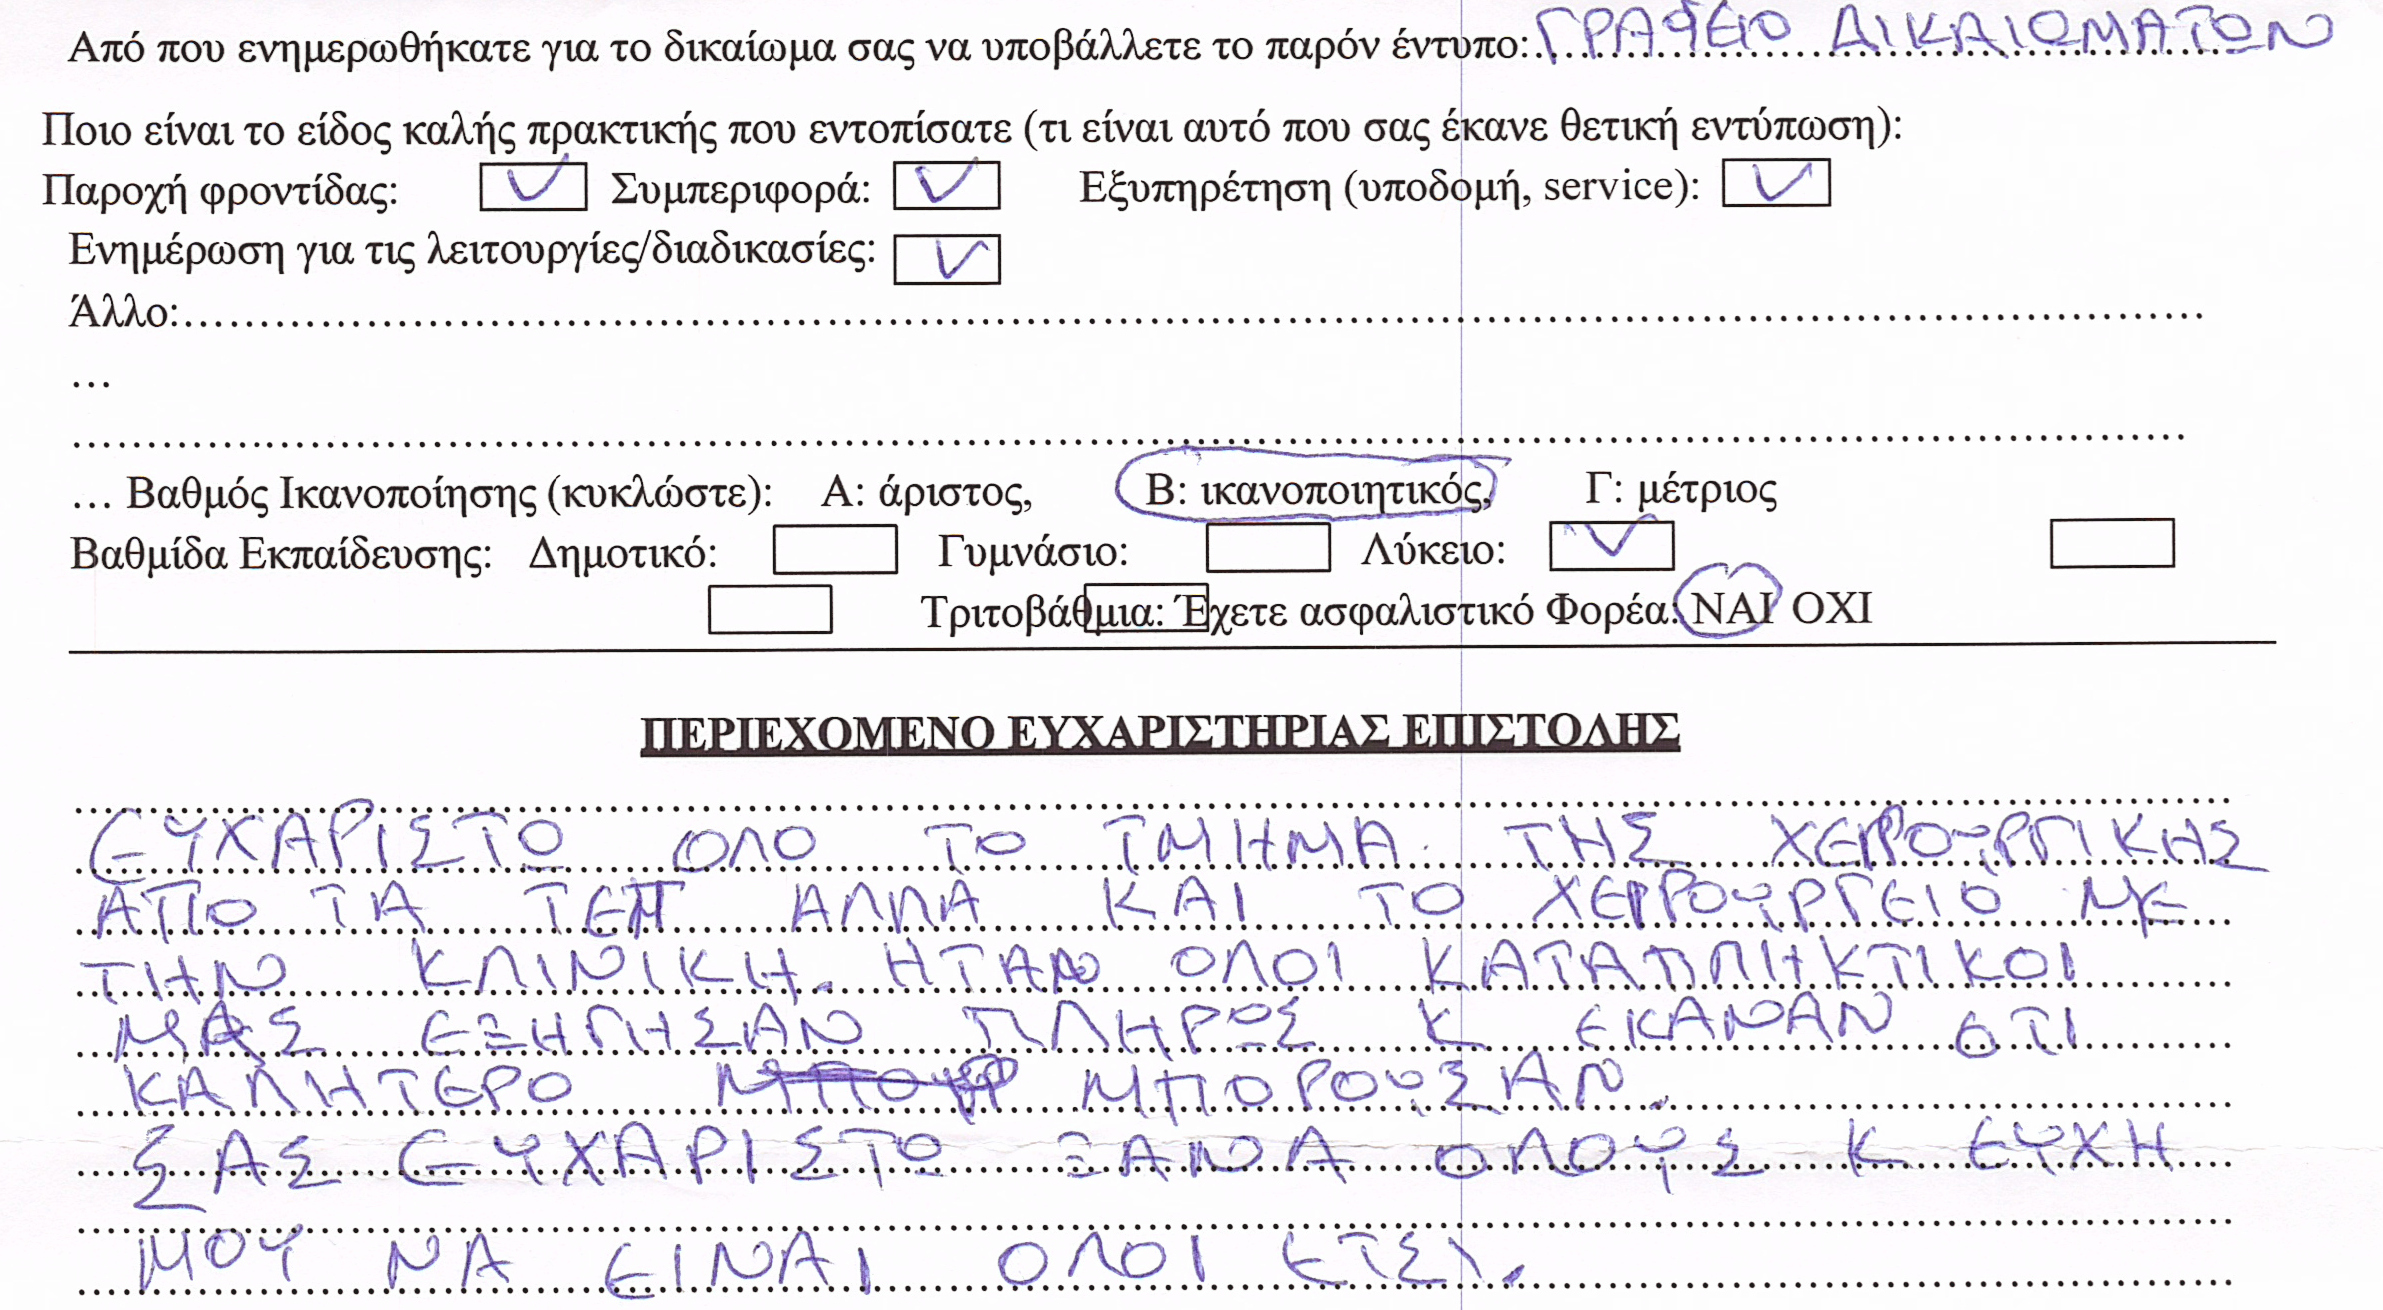 Από που ενημερωθήκατε για το δικαίωμα σας να υποβάλλετε το παρόν έντυπο: ΓΡΑΦΕΙΟ ΔΙΚΑΙΩΜΑΤΩΝ
Ποιο είναι το είδος καλής πρακτικής που εντοπίσατε (τι είναι αυτό που σας έκανε θετική εντύπωση):
Παροχή φροντίδας: ✓ Συμπεριφορά: ✓ Εξυπηρέτηση (υποδομή, service): ✓
Ενημέρωση για τις λειτουργίες/διαδικασίες: ✓
Άλλο:
…
… Βαθμός Ικανοποίησης (κυκλώστε): Α: άριστος, Β: ικανοποιητικός, Γ: μέτριος
Βαθμίδα Εκπαίδευσης: Δημοτικό: Γυμνάσιο: Λύκειο: ✓
Τριτοβάθμια: Έχετε ασφαλιστικό Φορέα: ΝΑΙ ΟΧΙ
ΠΕΡΙΕΧΟΜΕΝΟ ΕΥΧΑΡΙΣΤΗΡΙΑΣ ΕΠΙΣΤΟΛΗΣ
ΕΥΧΑΡΙΣΤΩ ΟΛΟ ΤΟ ΤΜΗΜΑ ΤΗΣ ΧΕΙΡΟΥΡΓΙΚΗΣ
ΑΠΟ ΤΑ ΤΕΠ ΑΛΛΑ ΚΑΙ ΤΟ ΧΕΙΡΟΥΡΓΕΙΟ ΜΕ
ΤΗΝ ΚΛΙΝΙΚΗ. ΗΤΑΝ ΟΛΟΙ ΚΑΤΑΠΛΗΚΤΙΚΟΙ
ΜΑΣ ΕΞΗΓΗΣΑΝ ΠΛΗΡΩΣ Κ ΕΚΑΝΑΝ ΟΤΙ
ΚΑΛΗΤΕΡΟ ΜΠΟΡΟΥΣΑΝ.
ΣΑΣ ΕΥΧΑΡΙΣΤΩ ΞΑΝΑ ΟΛΟΥΣ Κ ΕΥΧΗ
ΜΟΥ ΝΑ ΕΙΝΑΙ ΟΛΟΙ ΕΤΣΙ.